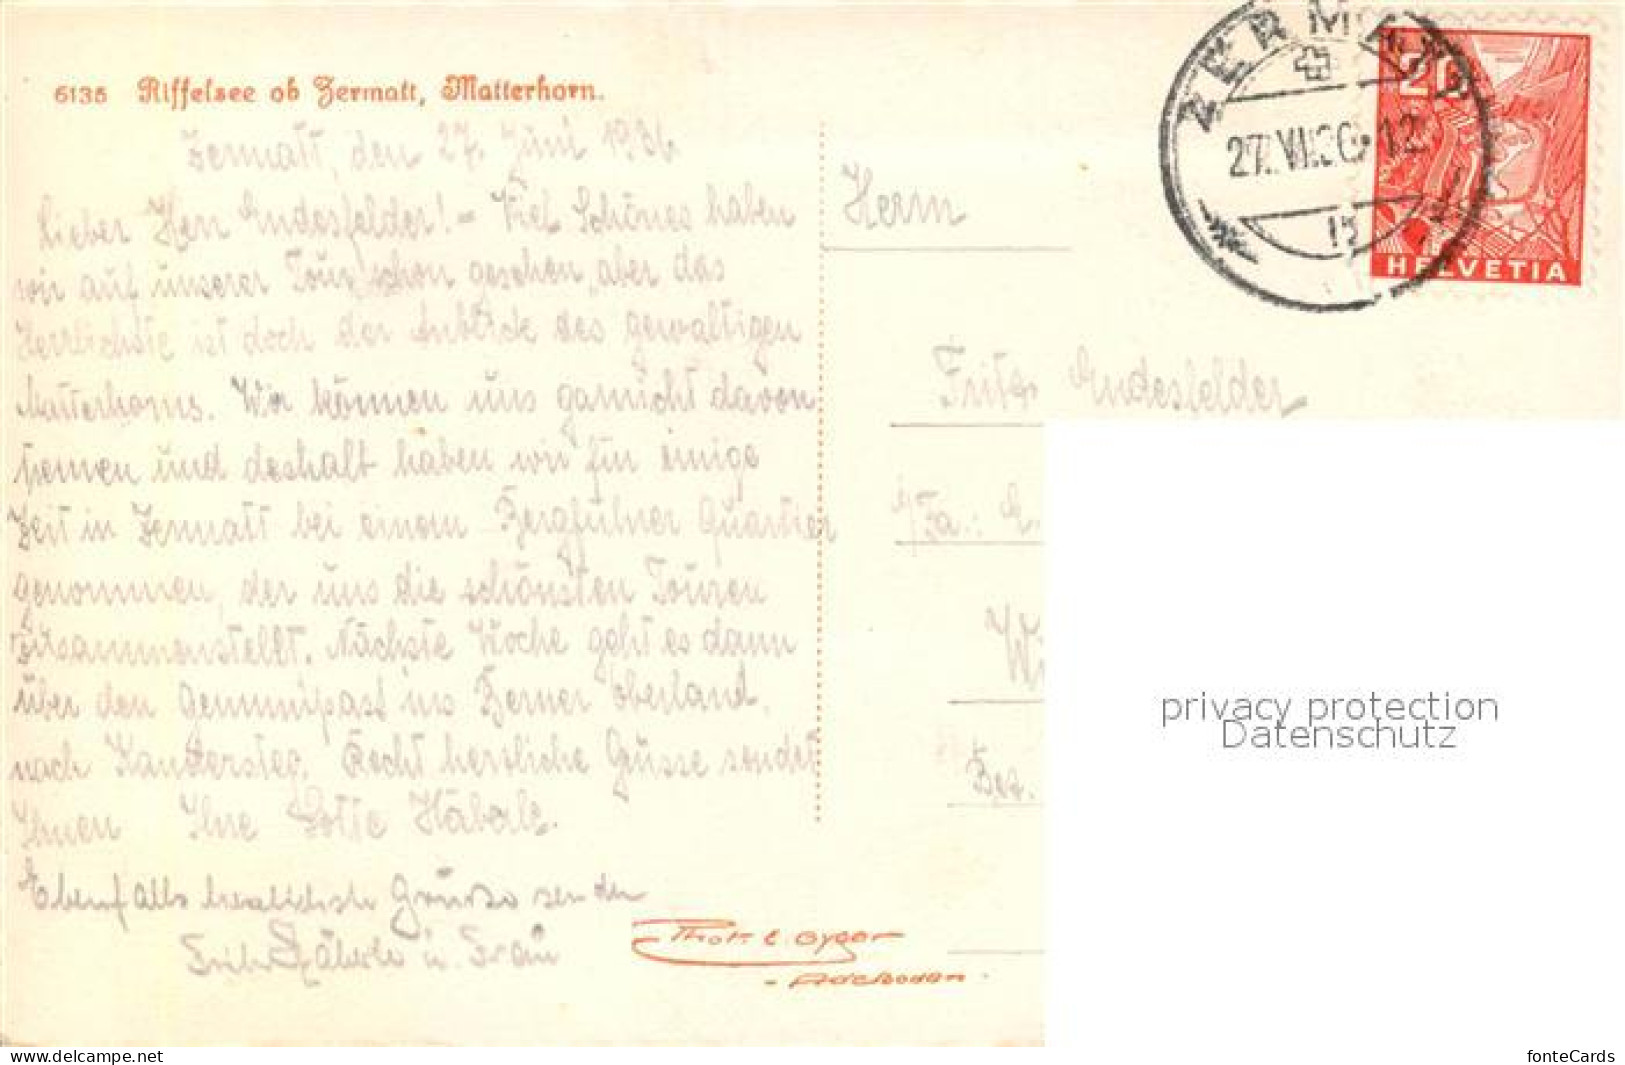 6135 Riffelsee ob Zermatt, Matterhorn.
Zermatt, den 27. Juni 1936
Lieber Herr Endesfelder! - Viel Schönes haben
wir auf unserer Tour schon gesehen, aber das
Herrlichste ist doch der Anblick des gewaltigen
Matterhorns. Wir können uns garnicht davon
trennen und deshalb haben wir für einige
Zeit in Zermatt bei einem Bergführer Quartier
genommen, der uns die schönsten Touren
zusammenstellt. Nächste Woche geht es dann
über den Gemmipass ins Berner Oberland,
nach Kandersteg. Recht herzliche Grüsse sendet
Ihnen Ihre Lotte Häberle.
Ebenfalls herzlichste Grüsse senden
Häberle u. Frau
Phot. E. Gyger
- Adelboden -
ZERMATT
27. VI. 36 - 12
HELVETIA
Herrn
Fritz Endesfelder
i/Fa.:
Wi
Bez.
privacy protection
Datenschutz
www.delcampe.net
fonteCards